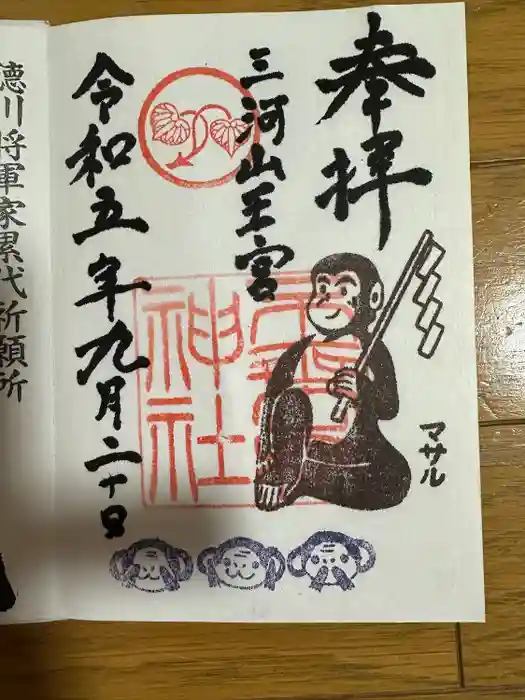 奉拝
三河山王宮
マサル
神社
令和五年九月二十日
徳川将軍家累代祈願所